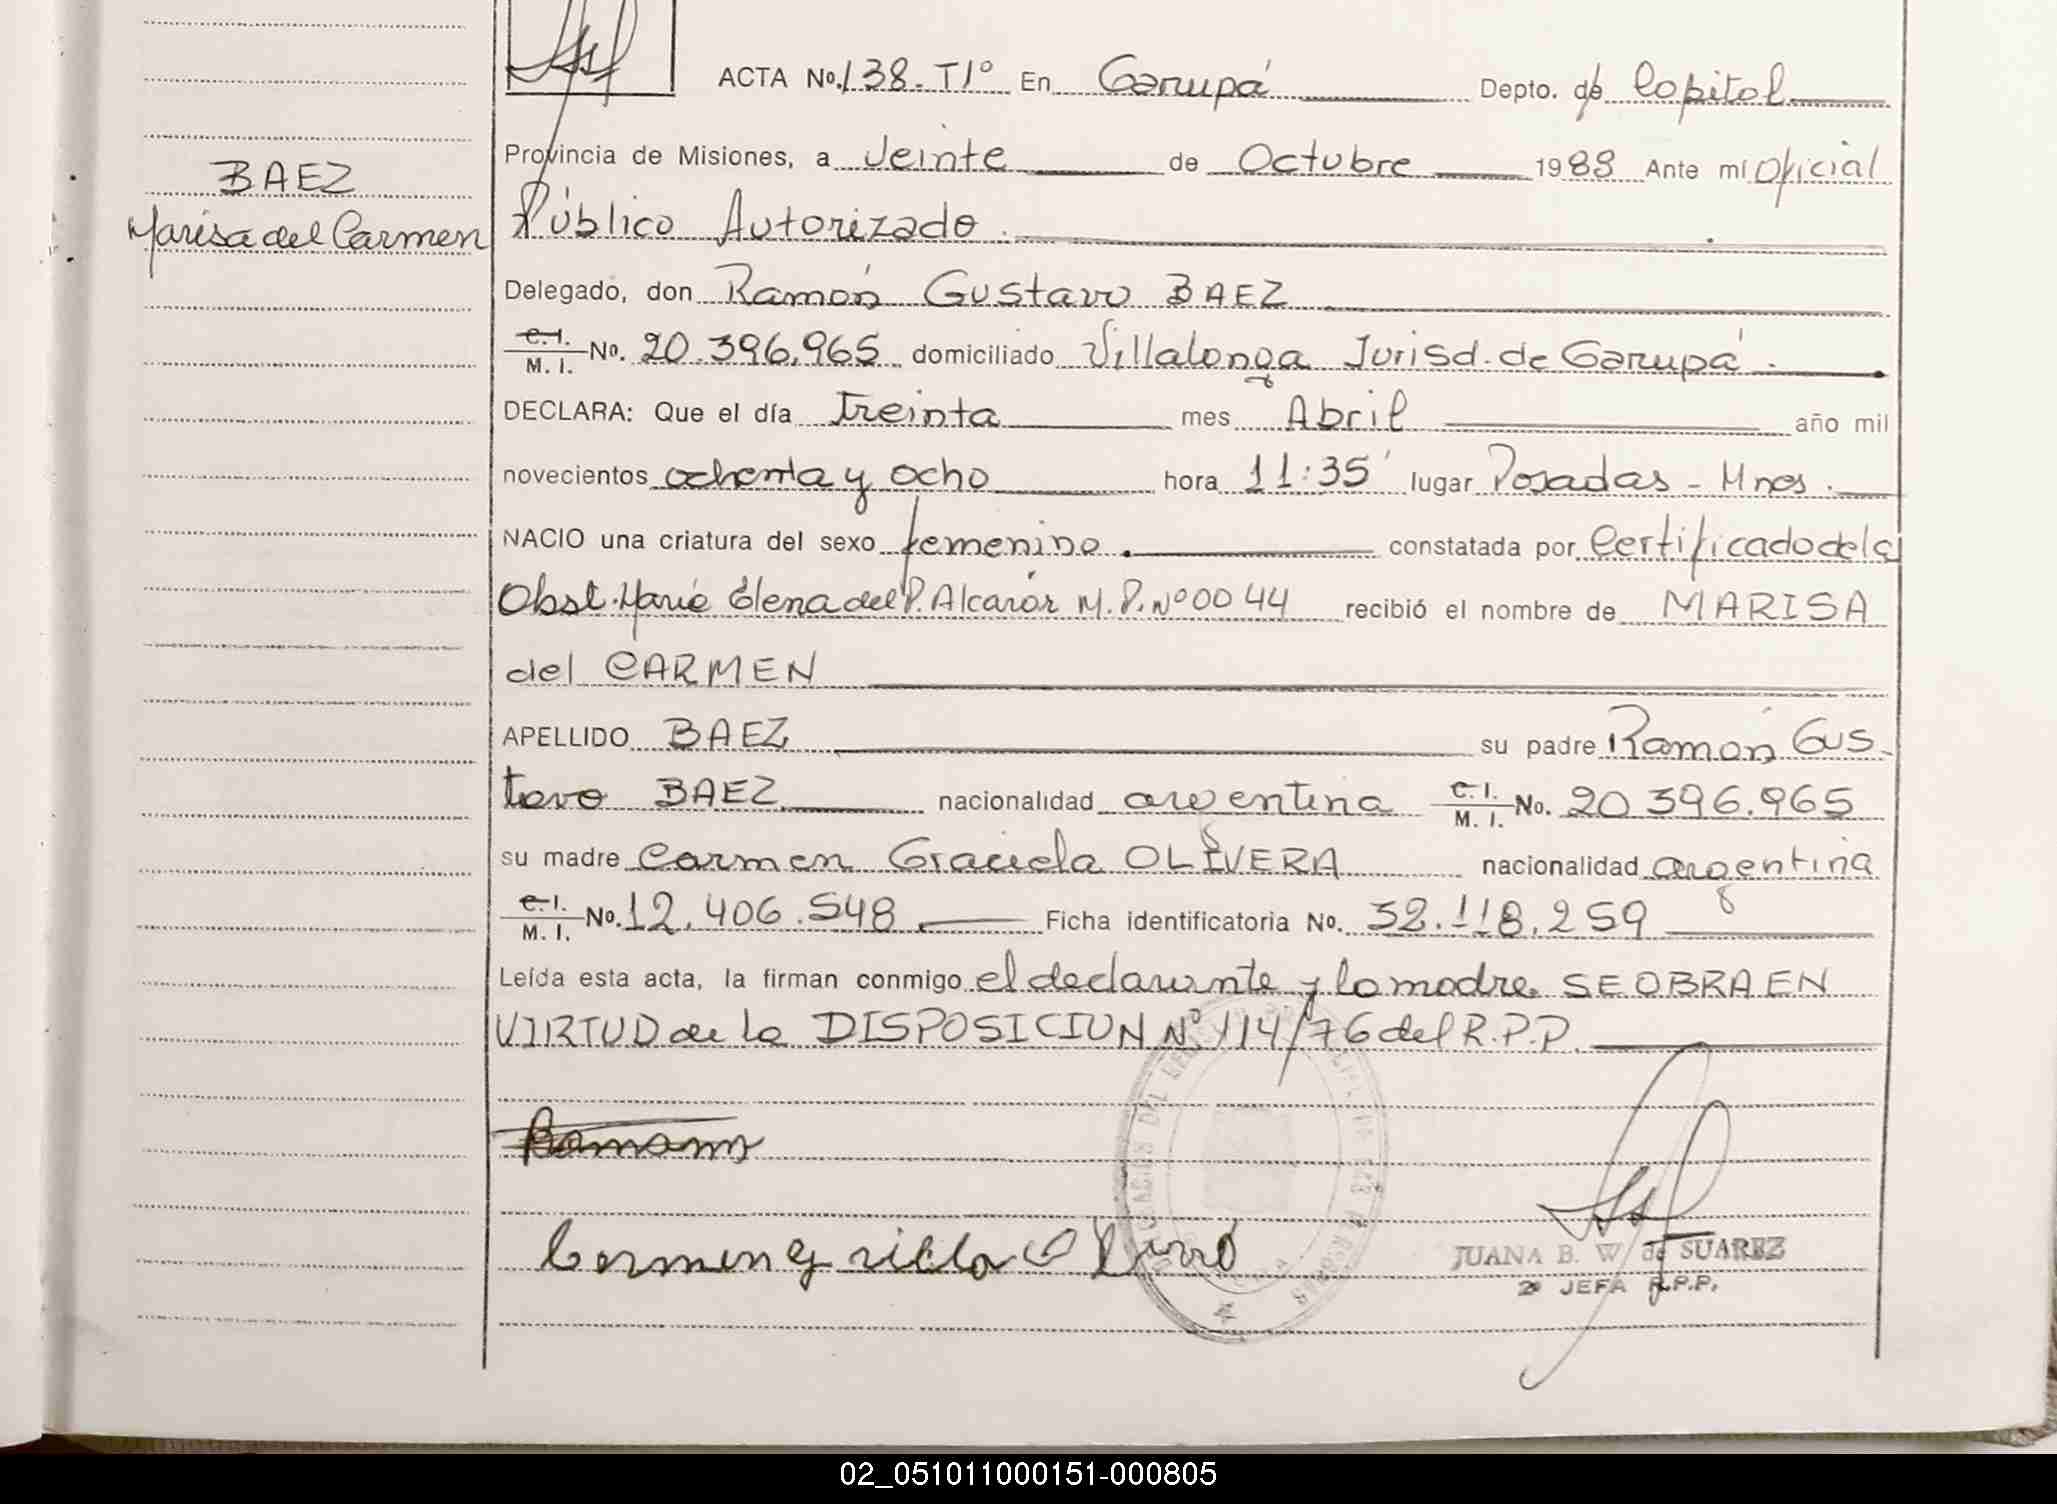 ACTA No. 138-T1º En Garupá Depto. de Capital
Provincia de Misiones, a Veinte de Octubre 1988 Ante mí Oficial
BAEZ
Público Autorizado.
Marisa del Carmen
Delegado, don Ramón Gustavo BAEZ
C.I. M.I. No. 20.396.965 domiciliado Villalonga Jurisd. de Garupá.
DECLARA: Que el día treinta mes Abril año mil
novecientos ochenta y ocho hora 11:35' lugar Posadas - Mnes.
NACIO una criatura del sexo femenino. constatada por Certificado de la
Obst. María Elena del P. Alcaráz M.P. Nº 0044 recibió el nombre de MARISA
del CARMEN
APELLIDO BAEZ su padre Ramón Gus-
tavo BAEZ nacionalidad argentina C.I. M.I. No. 20.396.965
su madre Carmen Graciela OLIVERA nacionalidad argentina
C.I. M.I. No. 12.406.548 Ficha identificatoria No. 32.118.259
Leída esta acta, la firman conmigo el declarante y la madre SE OBRA EN
VIRTUD de la DISPOSICIUN Nº 114/76 del R.P.P.
JUANA B. W. de SUAREZ
2ª JEFA R.P.P.
02_051011000151-000805